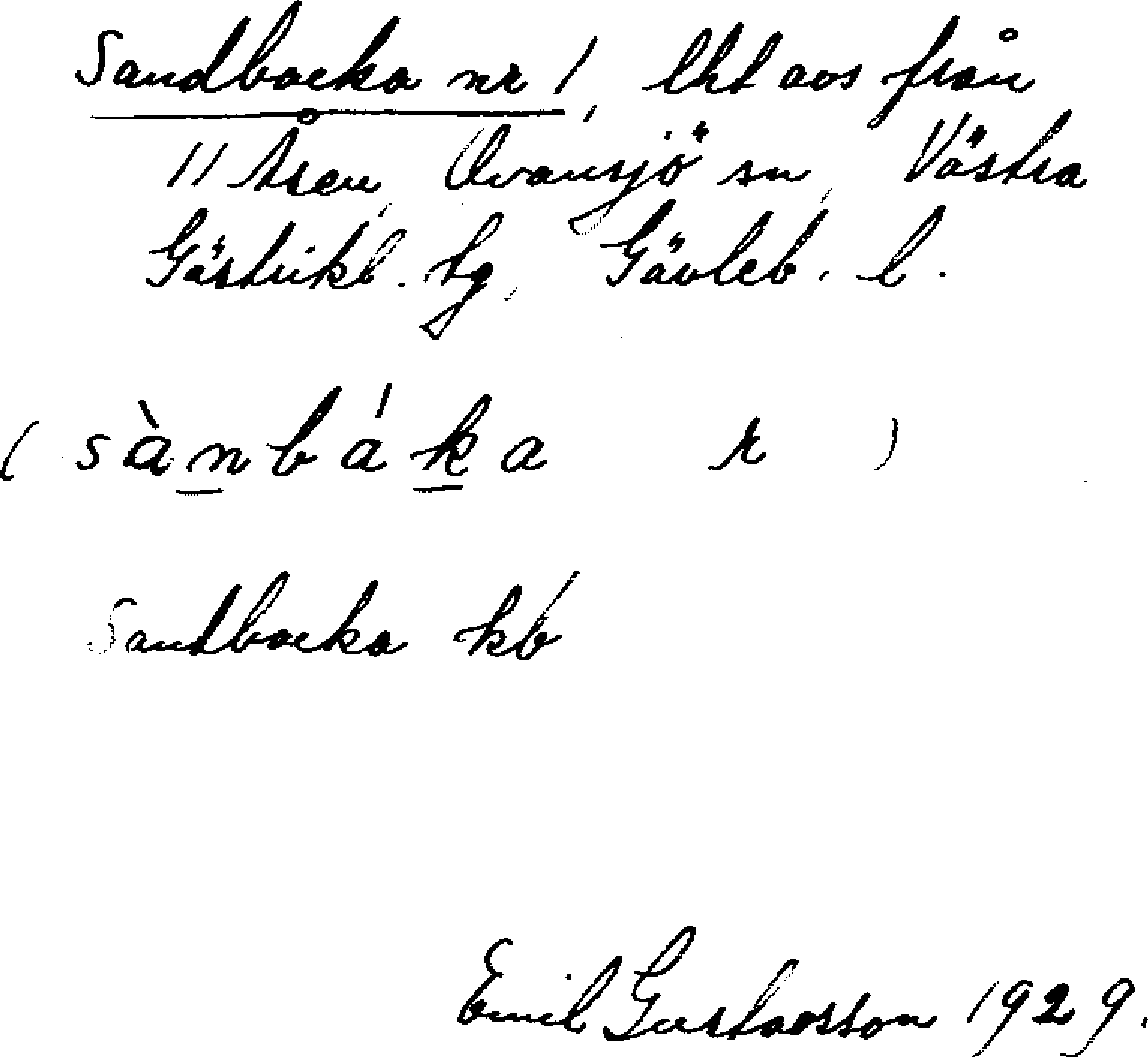 Sandbacka nr 1, lht avs från
11 Åsen, Ovansjö sn, Västra
Gästrikl. tg, Gävleb. l.
(sànbáka r)
Sandbacka kb
Emil Gustavsson 1929.